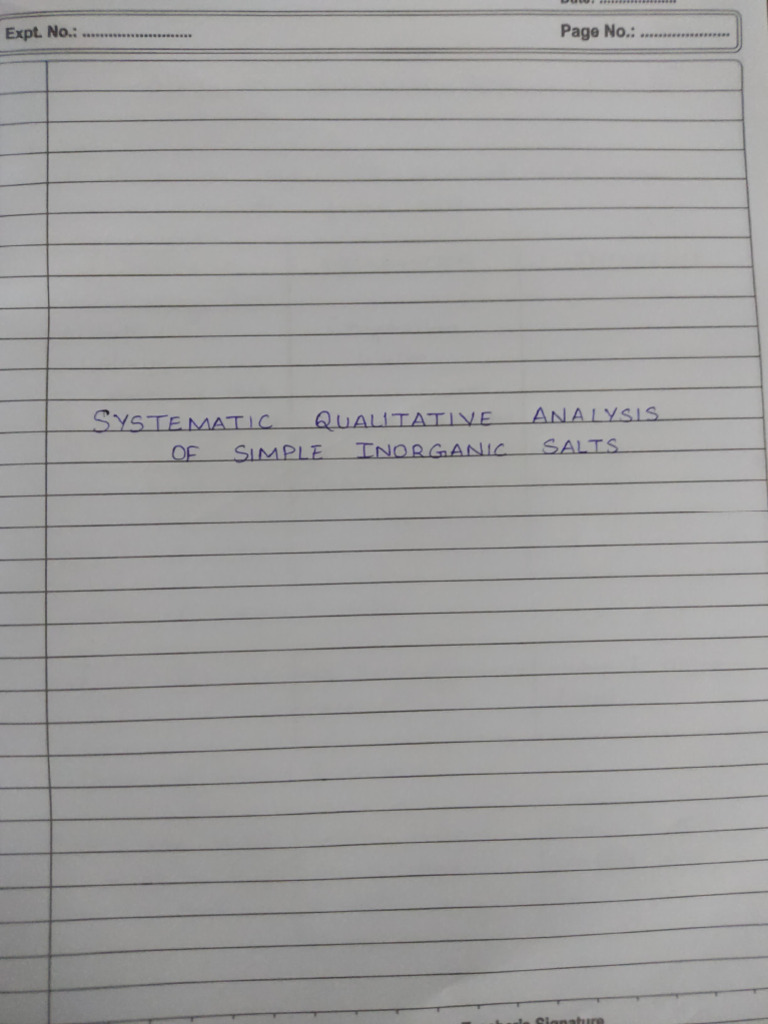 Expt. No.: ..........................
Page No.: .....................
SYSTEMATIC QUALITATIVE ANALYSIS
OF SIMPLE INORGANIC SALTS
Signature